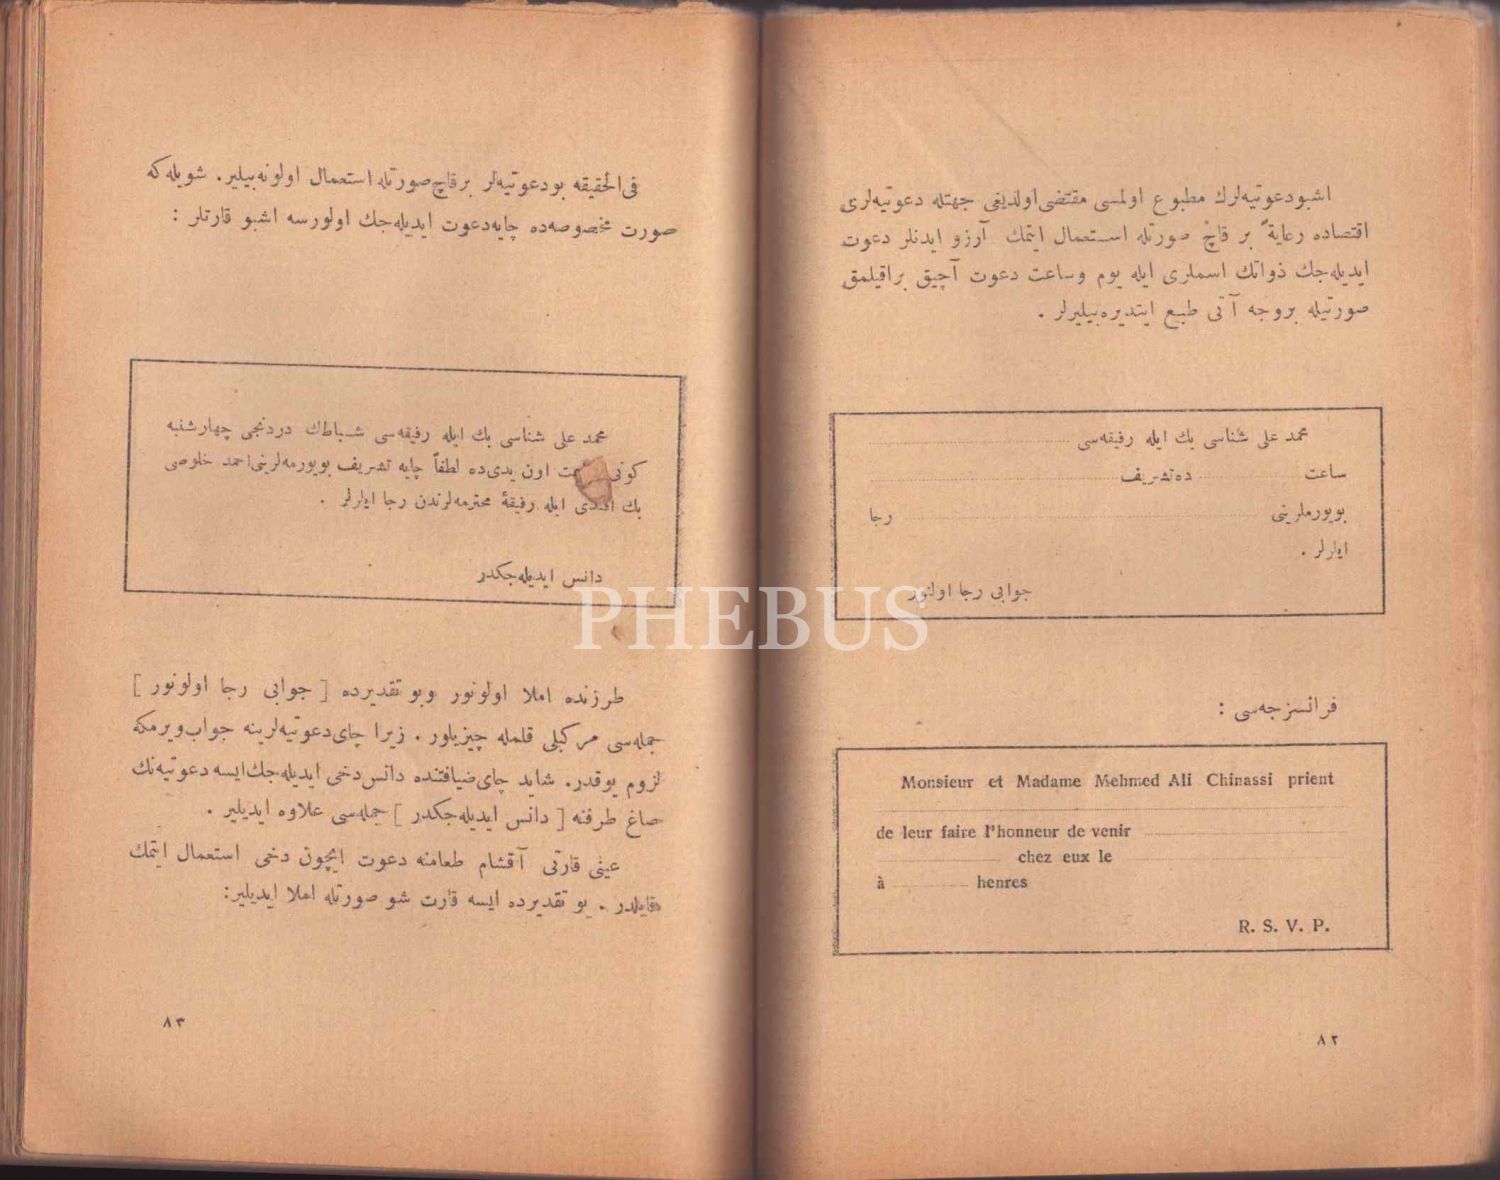 اشبو دعوتیه‌لرك مطبوع اولمسی مقتضی اولدیغی جهتله دعوتیه‌لری
اقتصاده رعایةً بر قاچ صورتله استعمال ایتمك آرزو ایدنلر دعوت
ایدیله‌جك ذواتك اسملری ایله یوم وساعت دعوت آچیق براقیلمق
صورتیله بروجه آتی طبع ایتدیره‌بیلیرلر .
محمد علی شناسی بك ایله رفیقه‌سی
ساعت ده تشریف
بویورملرینی رجا
ایدرلر .
جوابی رجا اولنور
فرانسزجه‌سی :
Monsieur et Madame Mehmed Ali Chinassi prient
de leur faire l'honneur de venir
chez eux le
à henres
R. S. V. P.
٨٢
فی‌الحقیقه بو دعوتیه‌لر بر قاچ صورتله استعمال اولونه‌بیلیر. شویله‌که
صورت مخصوصه‌ده چایه دعوت ایدیله‌جك اولورسه اشبو قارتلر :
محمد علی شناسی بك ایله رفیقه‌سی شباطك دردنجی چهارشنبه
کونی ساعت اون یدی‌ده لطفاً چایه تشریف بویورمه‌لرینی احمد خلوصی
بك افندی ایله رفیقهٔ محترمه‌لرندن رجا ایدرلر .
دانس ایدیله‌جکدر
طرزنده املا اولونور وبو تقدیرده [ جوابی رجا اولونور ]
جمله‌سی مرکبلی قلمله چیزیلور . زیرا چای دعوتیه‌لرینه جواب ویرمکه
لزوم یوقدر. شاید چای ضیافتنده دانس دخی ایدیله‌جك ایسه دعوتیه‌نك
صاغ طرفنه [ دانس ایدیله‌جکدر ] جمله‌سی علاوه ایدیلیر .
عینی قارتی آقشام طعامنه دعوت ایچون دخی استعمال ایتمك
قابلدر . بو تقدیرده ایسه قارت شو صورتله املا ایدیلیر:
٨٣
PHEBUS